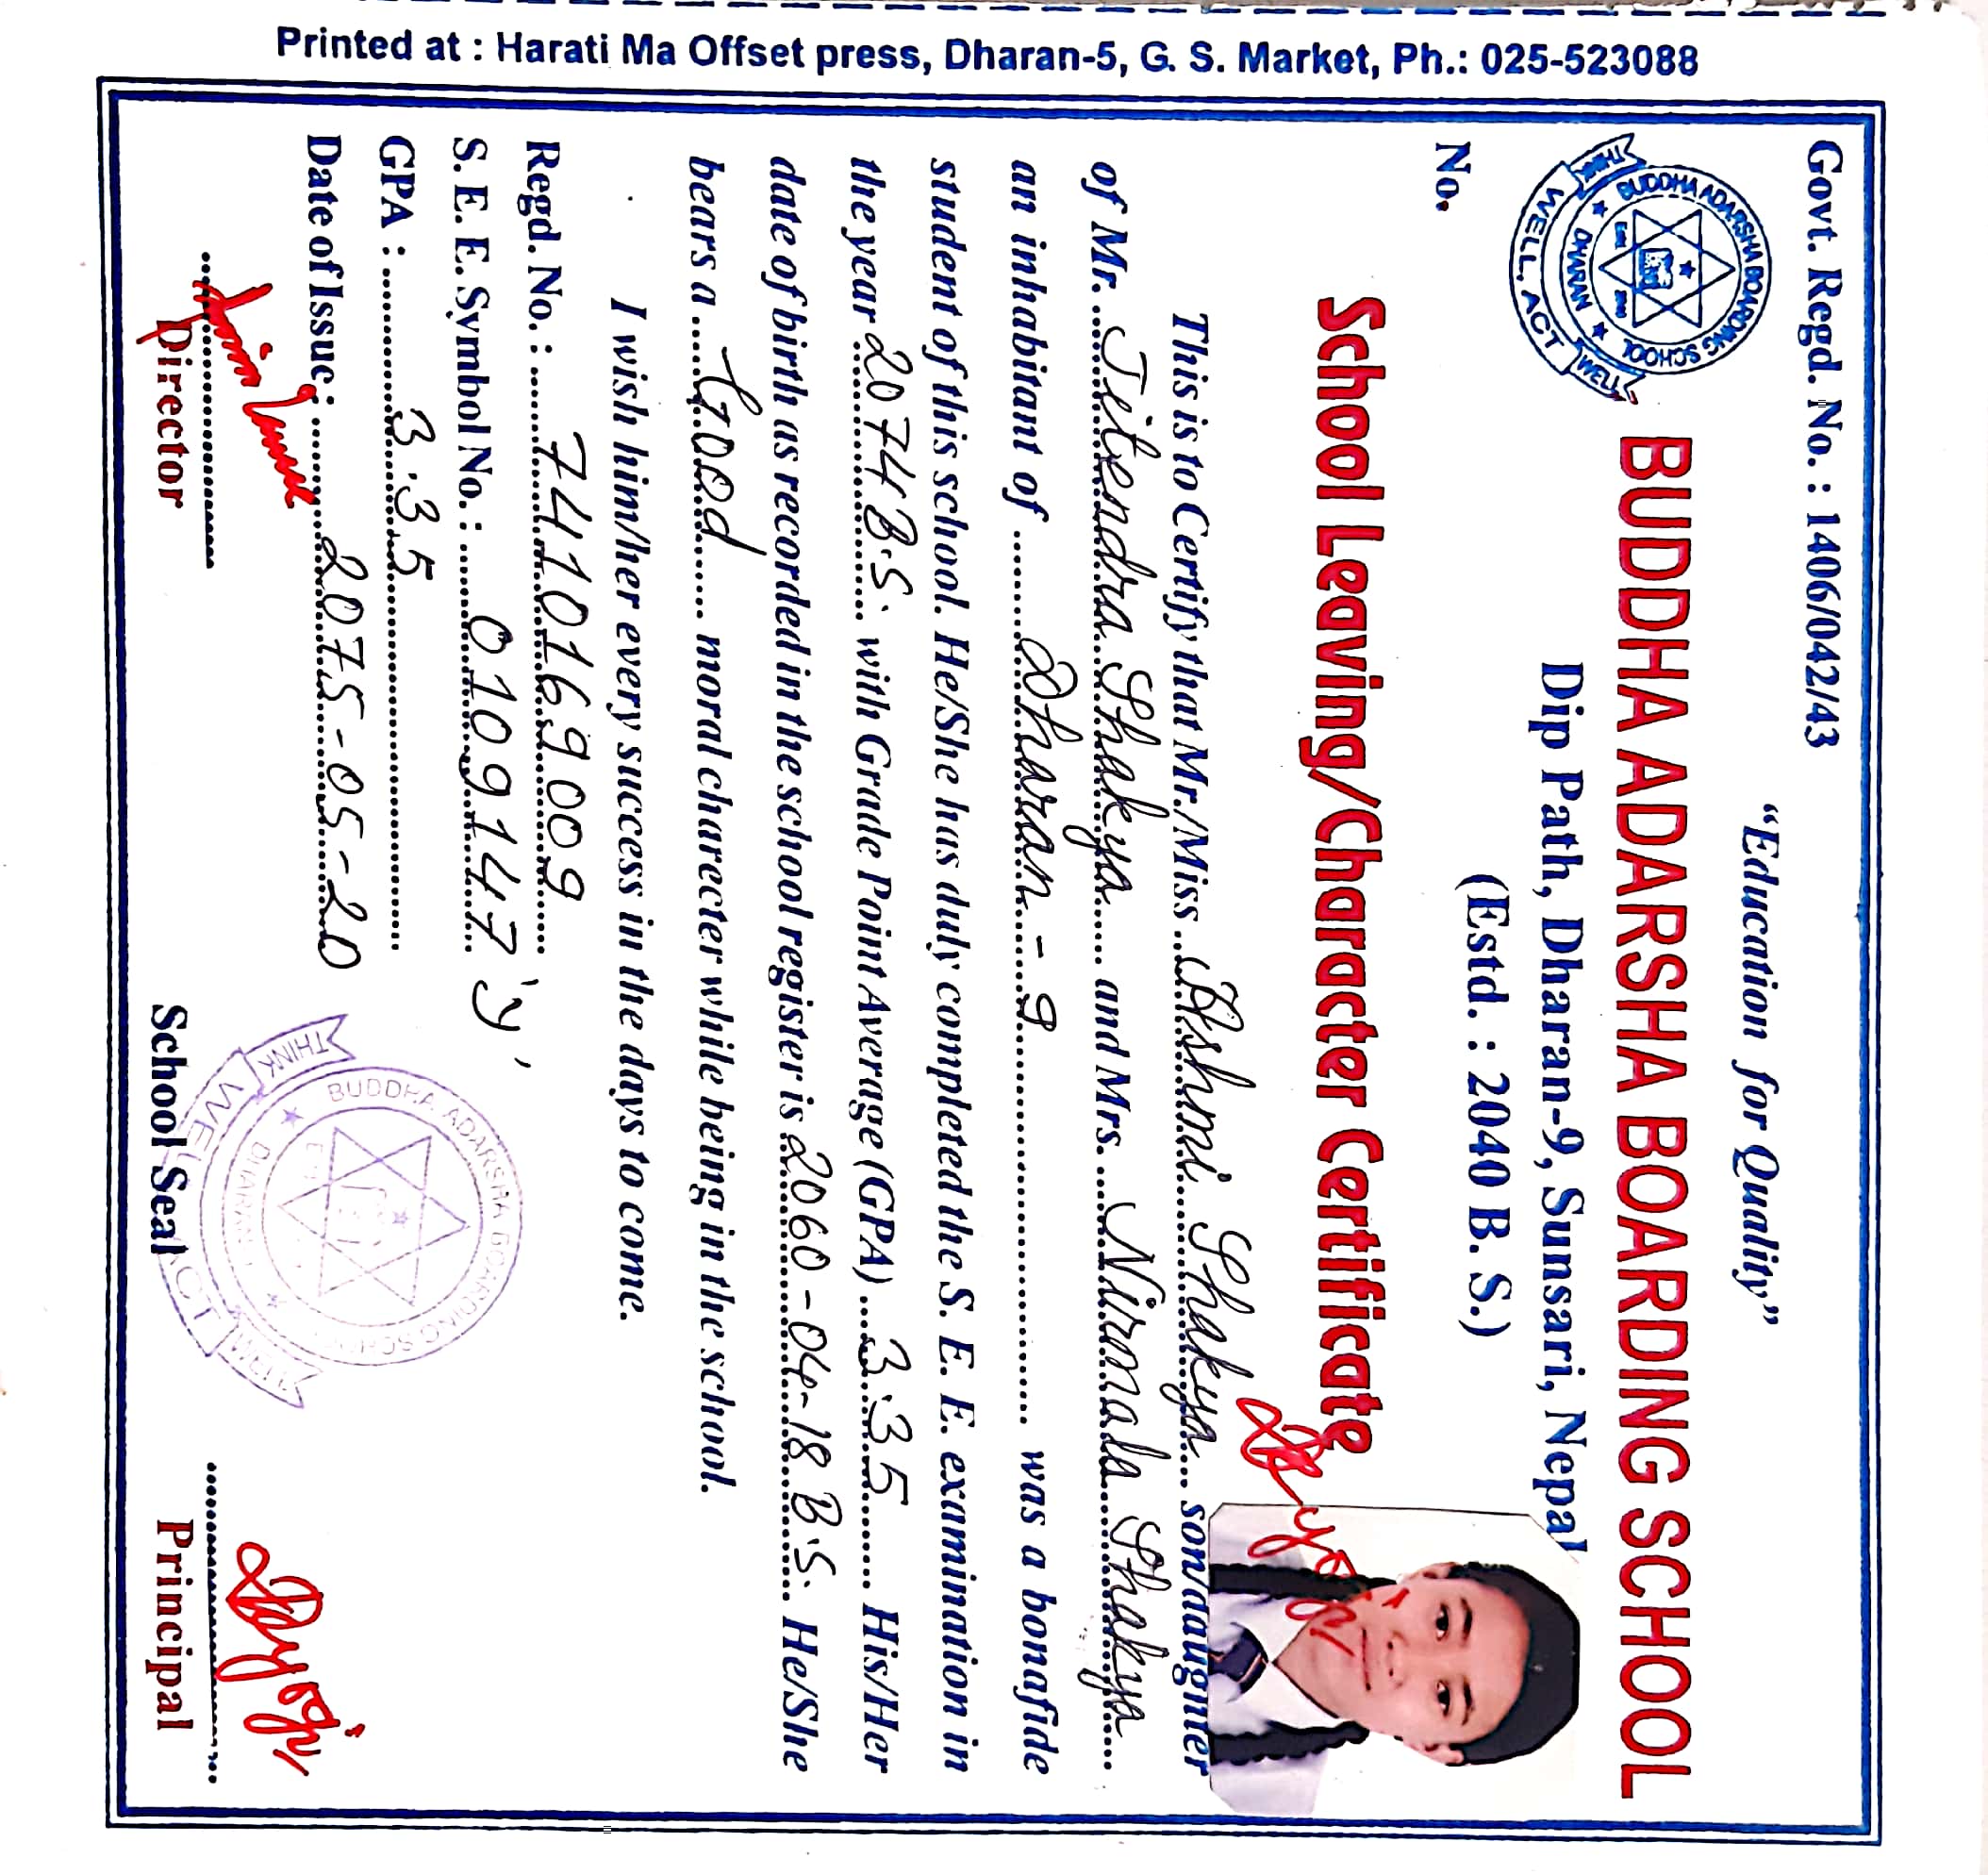 Printed at : Harati Ma Offset press, Dharan-5, G. S. Market, Ph.: 025-523088
Govt. Regd. No. : 1406/042/43
"Education for Quality"
BUDDHA ADARSHA BOARDING SCHOOL
BUDDHA ADARSHA BOARDING SCHOOL
DHARAN
THINK WELL, ACT WELL
Dip Path, Dharan-9, Sunsari, Nepal
(Estd. : 2040 B. S.)
No.
School Leaving/Character Certificate
This is to Certify that Mr./Miss Ashmi Shakya son/daughter
of Mr. Jitendra Shakya and Mrs. Nirmala Shakya
an inhabitant of Dharan - 9 was a bonafide
student of this school. He/She has duly completed the S. E. E. examination in
the year 2074 B.S. with Grade Point Average (GPA) 3.35 His/Her
date of birth as recorded in the school register is 2060-04-18 B.S. He/She
bears a Good moral charecter while being in the school.
I wish him/her every success in the days to come.
Regd. No. : 7410169009
S. E. E. Symbol No. : 0109147 'Y'
GPA : 3.35
Date of Issue : 2075-05-20
BUDDHA ADARSHA BOARDING SCHOOL
THINK WELL ACT
Director
School Seal
Principal